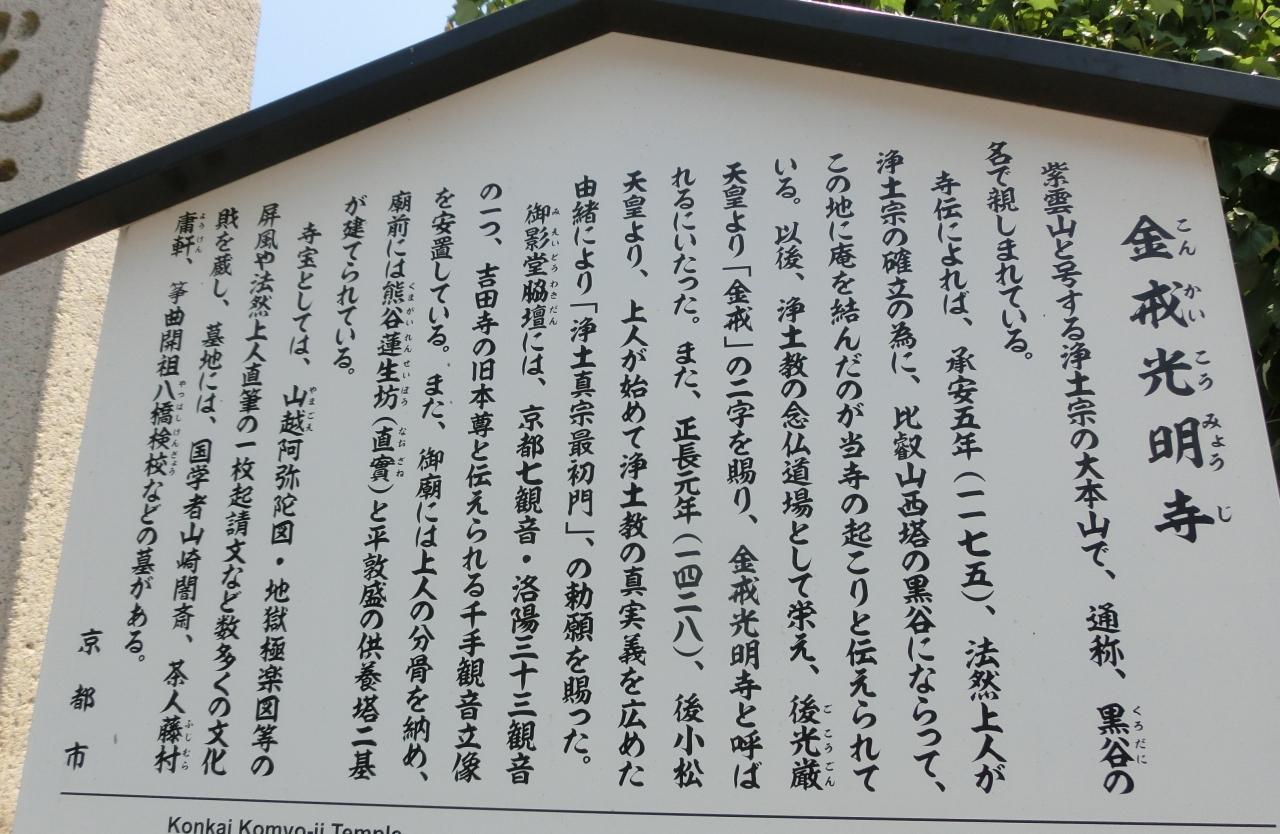 金戒光明寺
こんかいこうみょうじ
紫雲山と号する浄土宗の大本山で、通称、黒谷の
くろだに
名で親しまれている。
寺伝によれば、承安五年(一一七五)、法然上人が
浄土宗の確立の為に、比叡山西塔の黒谷にならって、
この地に庵を結んだのが当寺の起こりと伝えられて
いる。以後、浄土教の念仏道場として栄え、後光厳
ごこうごん
天皇より「金戒」の二字を賜り、金戒光明寺と呼ば
れるにいたった。また、正長元年(一四二八)、後小松
天皇より、上人が始めて浄土教の真実義を広めた
由緒により「浄土真宗最初門」、の勅願を賜った。
御影堂脇壇には、京都七観音・洛陽三十三観音
みえいどうわきだん
の一つ、吉田寺の旧本尊と伝えられる千手観音立像
を安置している。また、御廟には上人の分骨を納め、
廟前には熊谷蓮生坊(直實)と平敦盛の供養塔二基
くまがいれんせいぼう なおざね
が建てられている。
寺宝としては、山越阿弥陀図・地獄極楽図等の
やまごえ
屏風や法然上人直筆の一枚起請文など数多くの文化
財を蔵し、墓地には、国学者山崎闇斎、茶人藤村
ふじむら
庸軒、箏曲開祖八橋検校などの墓がある。
ようけん やつはしけんぎょう
京都市
Konkai Komyo-ji Temple